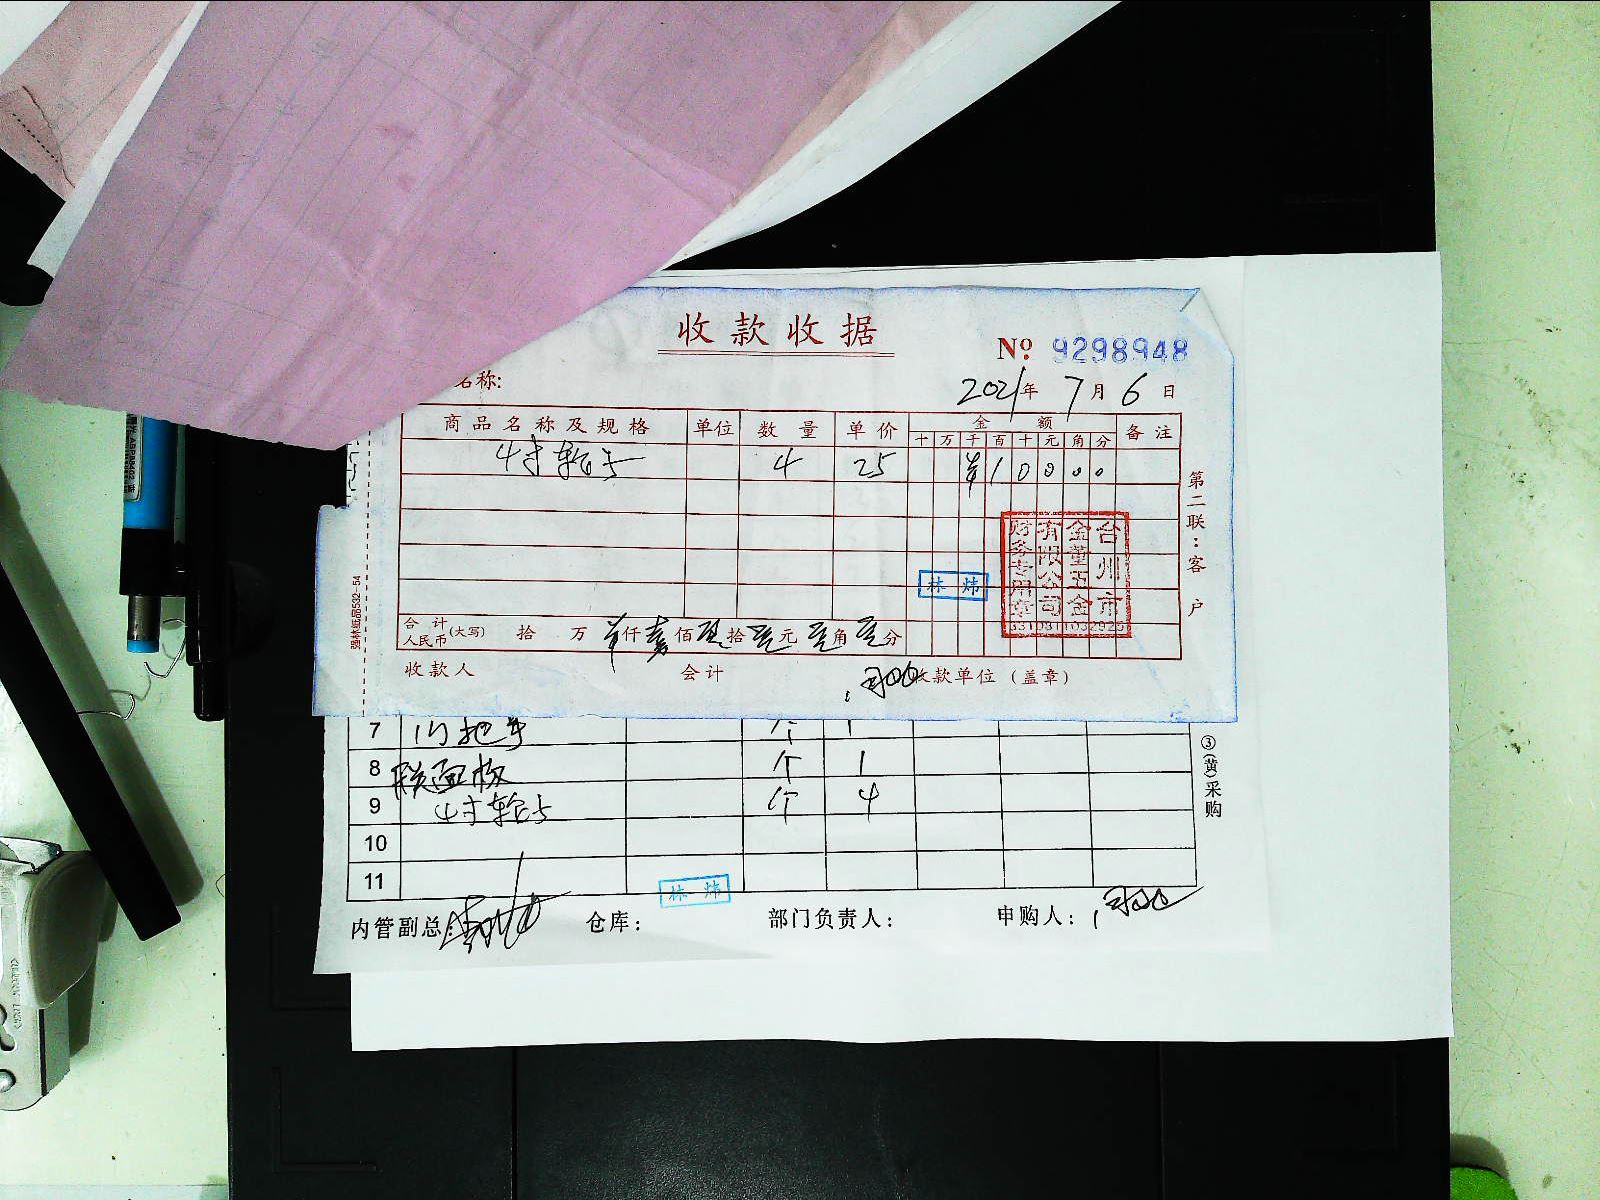 收款收据
№ 9298948
名称:
2021年 7月 6日
商品名称及规格 单位 数量 单价 金额 备注
十 万 千 百 十 元 角 分
4寸轮子 4 25 ¥10000
第二联：客户
台州市
金董五金
有限公司
财务专用章
林炜
强林纸品532-54
合计
人民币(大写) 拾 万 ¥仟壹佰零拾零元零角零分
收款人 会计 收款单位(盖章)
7 门把手 个 1
8 面板 个 1
9 4寸轮子 个 4
10
11
③(黄)采购
林炜
内管副总: 仓库: 部门负责人: 申购人: